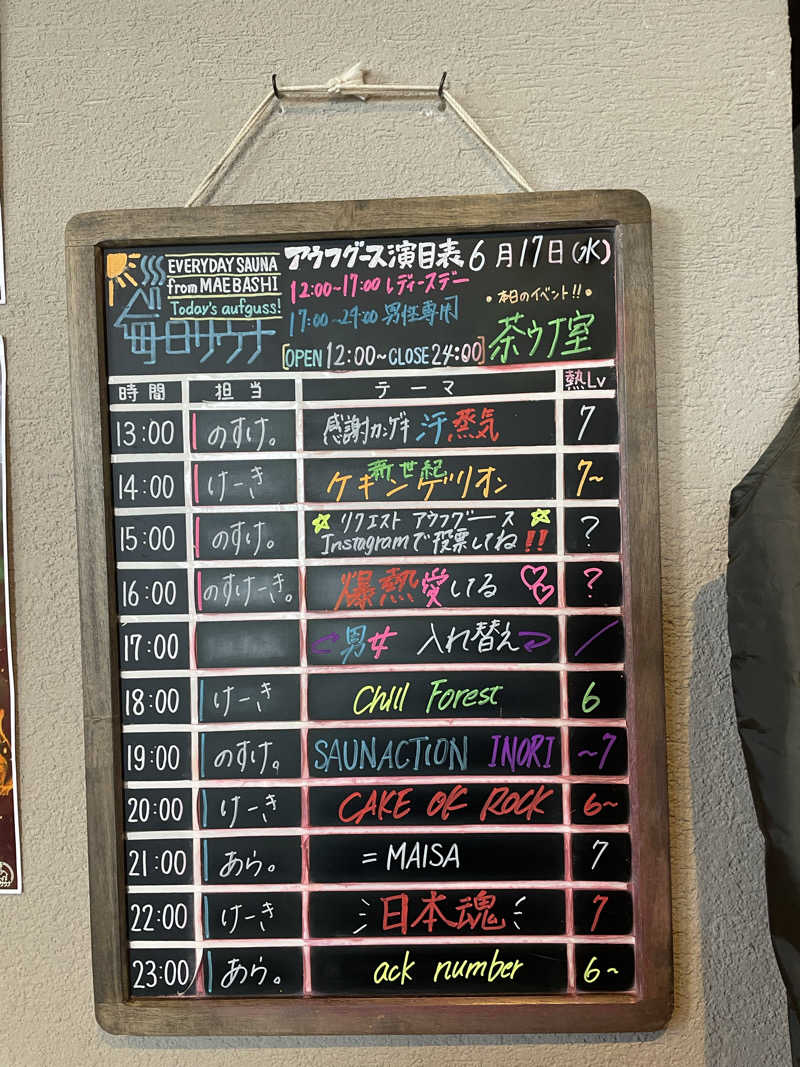 EVERYDAY SAUNA
from MAEBASHI
Today's aufguss!
毎日サウナ
アウフグース演目表 6月17日(水)
12:00~17:00 レディースデー
17:00~24:00 男性専用
OPEN 12:00~CLOSE 24:00
・本日のイベント!!・
茶ウナ室
時間 担当 テーマ 熱Lv
13:00 のすけ。 感謝カンゲキ 汗 蒸気 7
14:00 けーき 新世紀 ケキンゲリオン 7~
15:00 のすけ。 リクエスト アウフグース ?
Instagramで投票してね!!
16:00 のすけーき。 爆熱愛してる ?
17:00 男女 入れ替え
18:00 けーき Chill Forest 6
19:00 のすけ。 SAUNACTION INORI ~7
20:00 けーき CAKE OF ROCK 6~
21:00 あら。 =MAISA 7
22:00 けーき 日本魂 7
23:00 あら。 ack number 6~